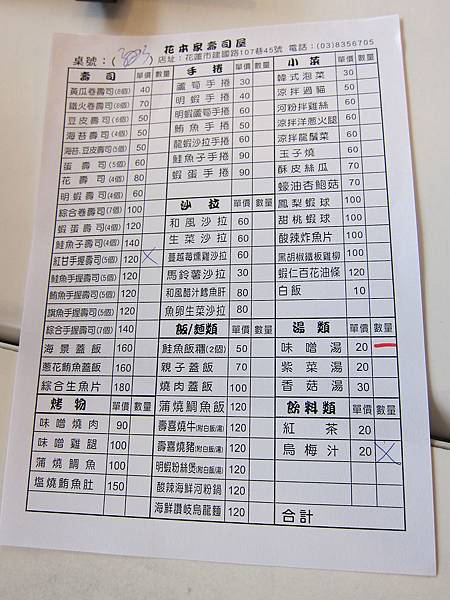 花本家壽司屋
桌號：( ) 店址：花蓮市建國路107巷45號 電話：(03)8356705
壽司 單價 數量
黃瓜卷壽司(8個) 40
鐵火卷壽司(8個) 70
豆皮壽司(5個) 50
海苔壽司(5個) 50
海苔.豆皮壽司(5個) 50
蛋壽司(5個) 60
花壽司(4個) 80
明蝦壽司(4個) 60
綜合卷壽司(7個) 100
蝦蛋壽司(4個) 120
鮭魚子壽司(4個) 140
紅甘手握壽司(5個) 120
鮭魚手握壽司(5個) 120
鮪魚手握壽司(5個) 120
旗魚手握壽司(5個) 120
綜合手握壽司(7個) 140
海景蓋飯 160
蔥花鮪魚蓋飯 160
綜合生魚片 180
烤物 單價 數量
味噌燒肉 90
味噌雞腿 100
蒲燒鯛魚 100
塩燒鮪魚肚 150
手捲 單價 數量
蘆筍手捲 30
明蝦手捲 40
明蝦蘆筍手捲 60
鮪魚手捲 50
龍蝦沙拉手捲 60
鮭魚子手捲 90
蝦蛋手捲 90
沙拉 單價 數量
和風沙拉 60
生菜沙拉 60
蔓越莓燻雞沙拉 60
馬鈴薯沙拉 30
和風醋汁鱈魚肝 80
魚卵生菜沙拉 80
飯/麵類 單價 數量
鮭魚飯糰(2個) 50
親子蓋飯 70
燒肉蓋飯 80
蒲燒鯛魚飯 120
壽喜燒牛(附白飯/湯) 120
壽喜燒豬(附白飯/湯) 120
明蝦粉絲煲(附白飯/湯) 120
酸辣海鮮河粉鍋 120
海鮮讚岐烏龍麵 120
小菜 單價 數量
韓式泡菜 30
涼拌過貓 50
河粉拌雞絲 60
涼拌洋蔥火腿 60
涼拌龍鬚菜 60
玉子燒 60
酥皮絲瓜 70
蠔油杏鮑菇 70
鳳梨蝦球 100
甜桃蝦球 100
酸辣炸魚片 100
黑胡椒鐵板雞柳 100
蝦仁百花油條 120
白飯 10
湯類 單價 數量
味噌湯 20
紫菜湯 20
香菇湯 30
飲料類 單價 數量
紅茶 20
烏梅汁 20
合計